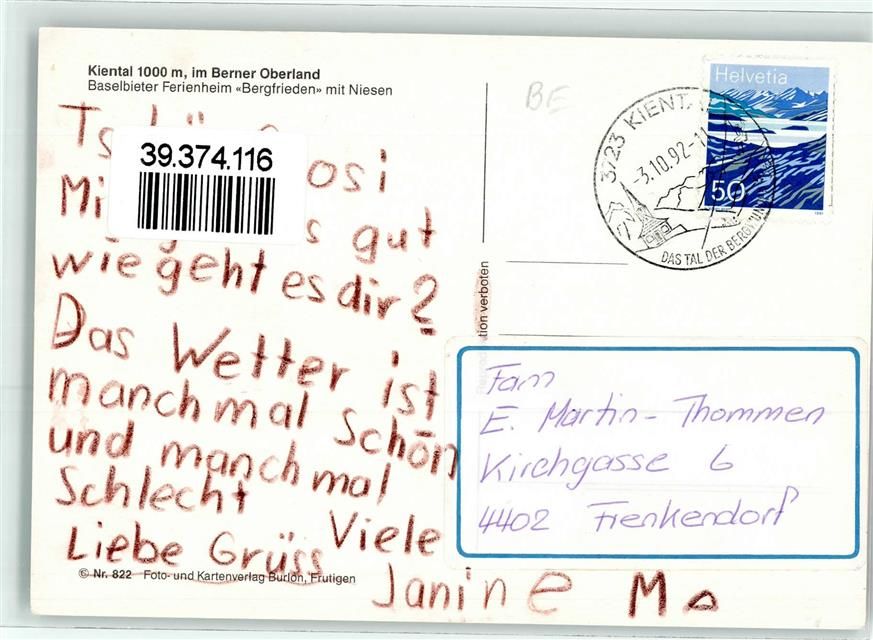 Kiental 1000 m, im Berner Oberland
Baselbieter Ferienheim «Bergfrieden» mit Niesen
BE
Helvetia
50
3723 KIENTAL
-3.10.92-11
DAS TAL DER
39.374.116
osi
gut
wie geht es dir?
Das Wetter ist
manchmal schön
und manchmal
Schlecht
Viele
Liebe Grüss
Janine M
verboten
Fam
E. Martin-Thommen
Kirchgasse 6
4402 Frenkendorf
© Nr. 822 Foto- und Kartenverlag Burlon, Frutigen